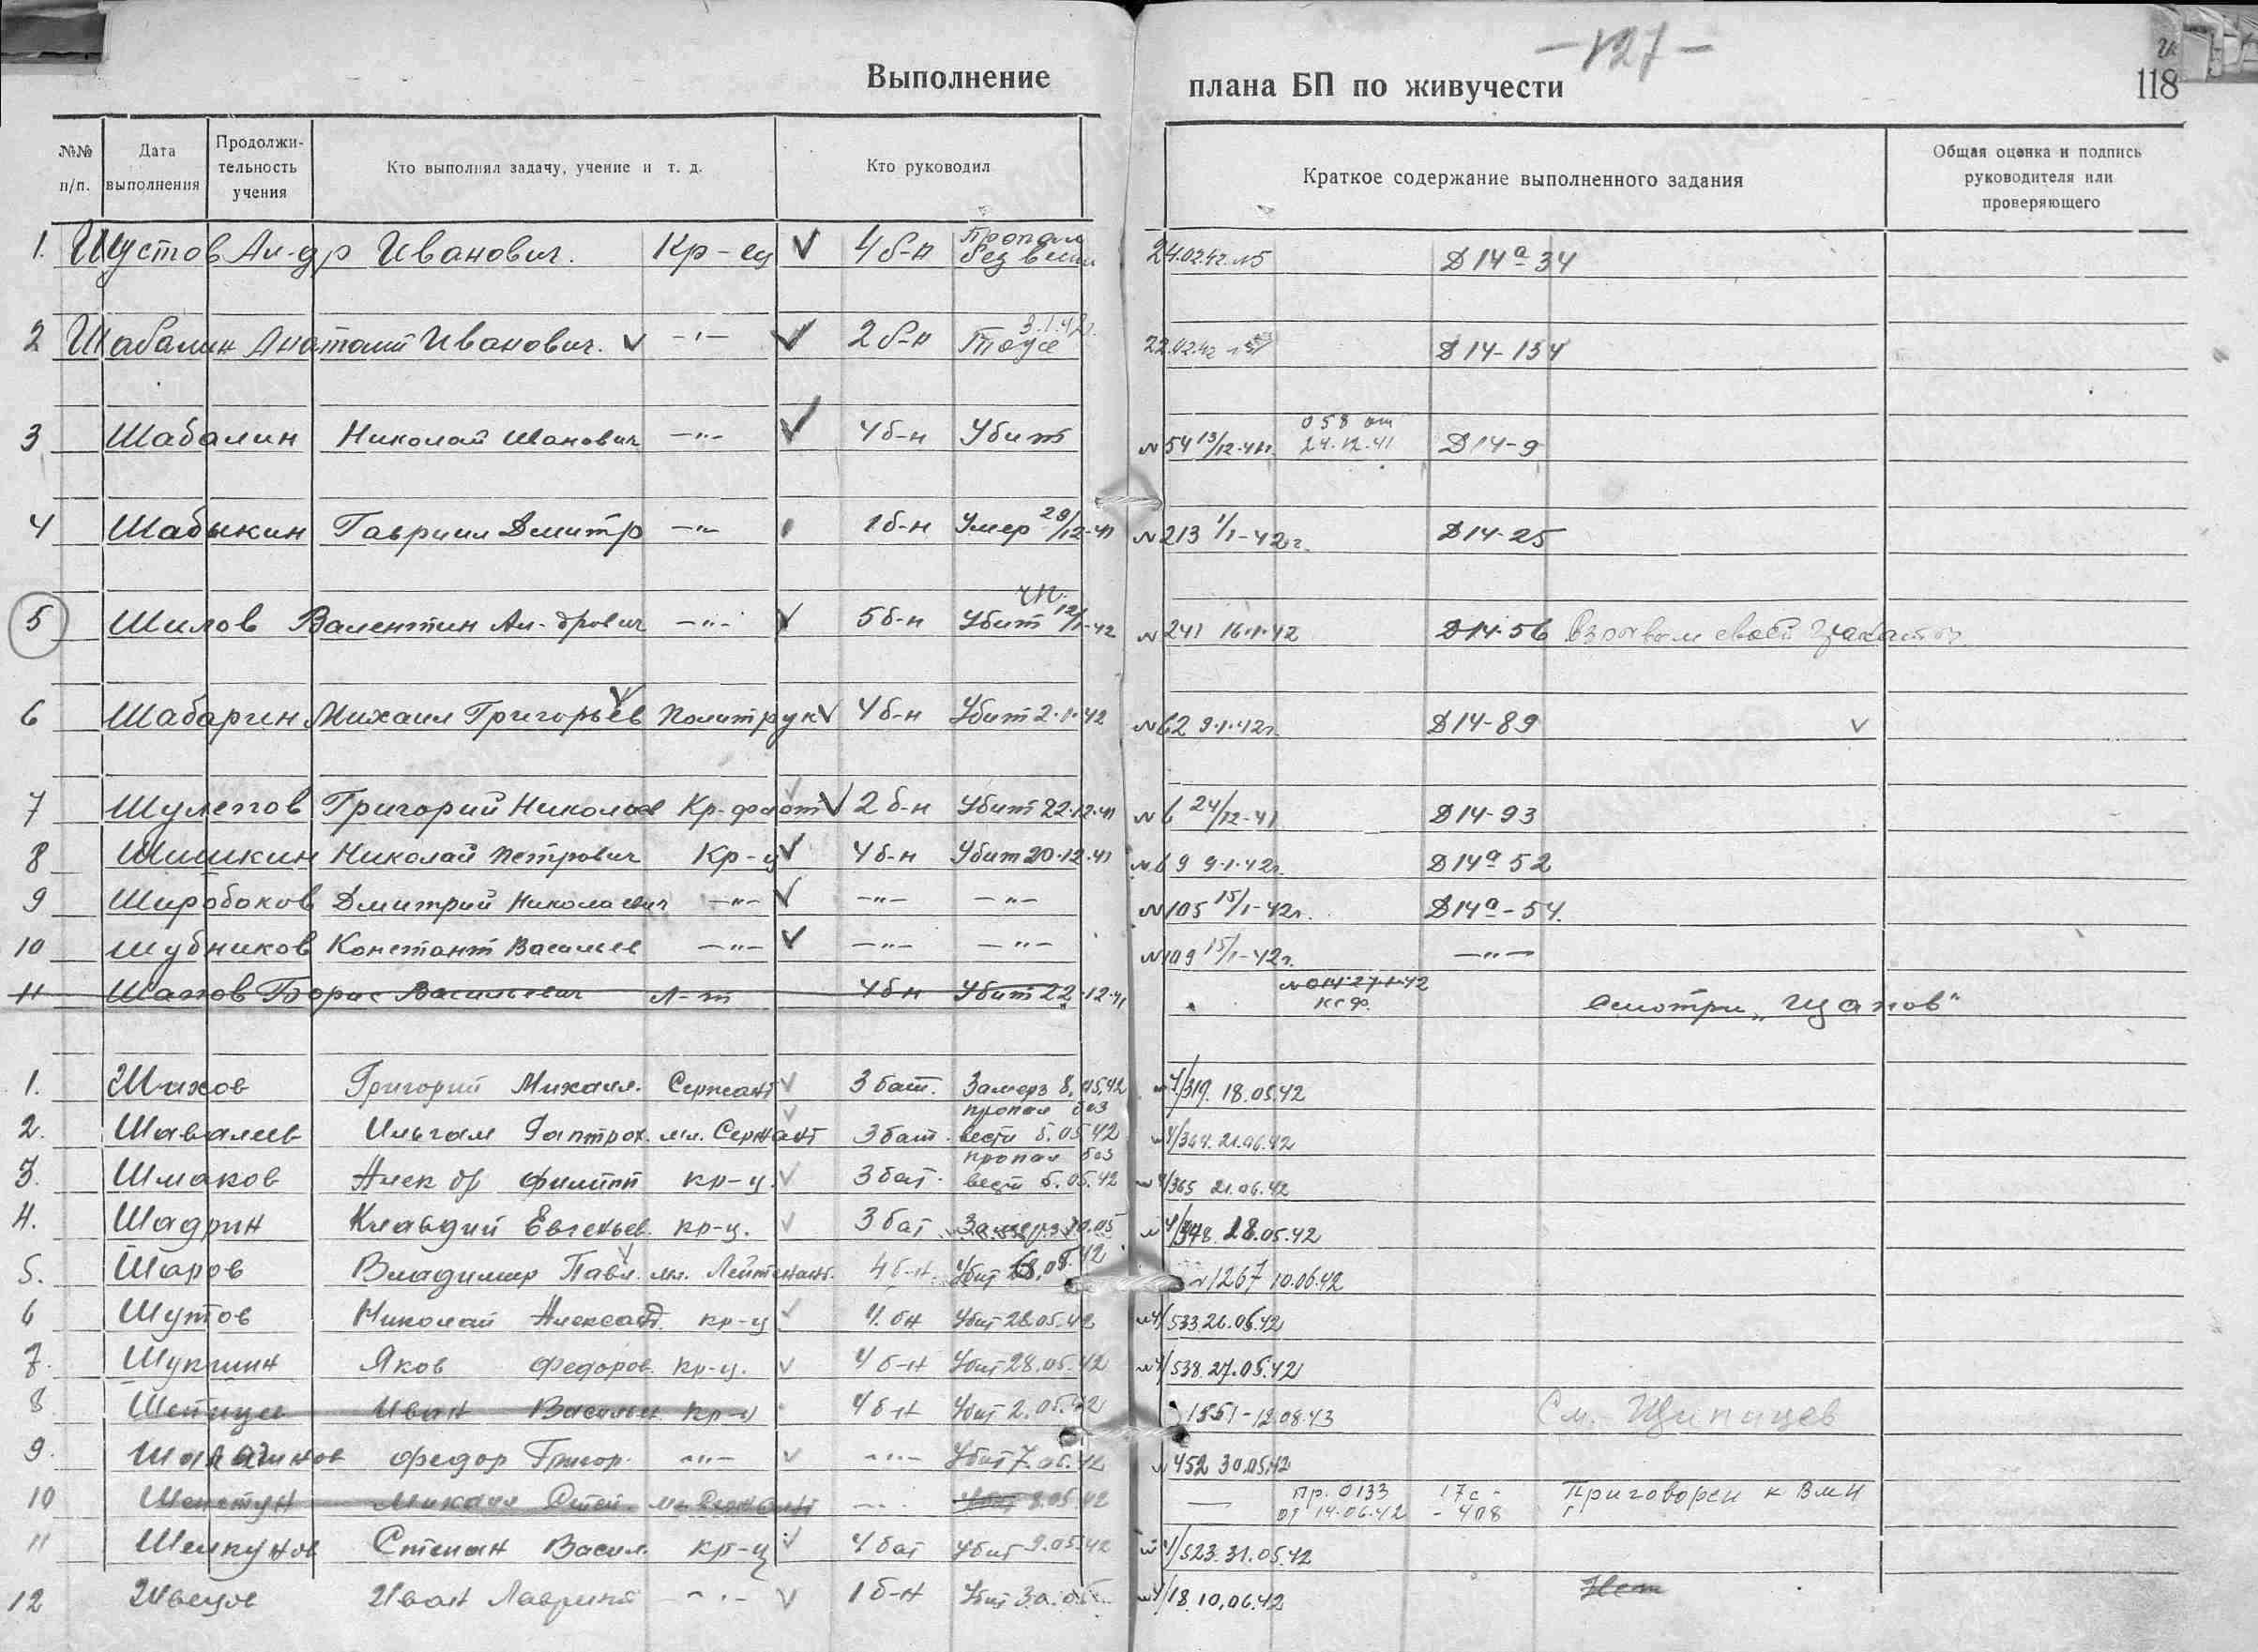 -127-
118
Выполнение плана БП по живучести
№№ п/п. Дата выполнения Продолжи-тельность учения Кто выполнял задачу, учение и т. д. Кто руководил Краткое содержание выполненного задания Общая оценка и подпись руководителя или проверяющего
1. Шустов Ал-др Иванович. Кр-ец 4 б-н Пропал без вести 24.02.42 №5 Д 14а-34
2 Шабалин Анатолий Иванович. -"- 2 б-н Тоже 3.1.42г. 22.02.42 Д 14-134
3 Шабалин Николай Иванович -"- 4 б-н Убит №54 13/12-41г. 058 от 24.12.41 Д14-9
4 Шабыкин Гавриил Дмитр -"- 1 б-н Умер 29/12-41 №213 1/1-42г. Д14-25
5 Шилов Валентин Ал-дрович -"- 5 б-н чп. Убит 12/1-42 №241 16.1.42 Д14-56 взрывом своей гранаты
6 Шабарин Михаил Григорьев Политрук 4 б-н Убит 2.1.42 №62 9.1.42г. Д14-89
7 Шулепов Григорий Николаев Кр-флот 2 б-н Убит 22.12.41 №6 24/12-41 Д14-93
8 Шишкин Николай Петрович Кр-ц 4 б-н Убит 20.12.41 №69 9.1.42г. Д14а-52
9 Широбоков Дмитрий Николаевич -"- -"- -"- №105 15/1-42г. Д14а-54.
10 Шубников Константин Васильев -"- -"- -"- №109 15/1-42г. -"-
11 Шапов Борис Васильевич л-т 4 б-н Убит 22.12.41 №014 27.1.42 КСФ. Смотри „Щапов"
1. Шихов Григорий Михаил. Сержант 3 бат. Замерз 8.05.42 №4/319. 18.05.42
2. Шавалеев Ильгам мл. Сержант 3 бат. пропал без вести 5.05.42 №4/364. 21.06.42
3. Шмаков Алек др Филипп кр-ц. 3 бат. пропал без вести 5.05.42 №4/365 21.06.42
4. Шадрин Клавдий Евгеньев. кр-ц. 3 бат Замерз 10.05 №4/348. 18.05.42
5. Шаров Владимир Павл. мл. Лейтенант. 4 б-н Убит 08.42 №1267 10.06.42
6 Шутов Николай Александ. кр-ц 4 бн Убит 28.05.42 №4/533 26.05.42
7. Шупшин Яков Федоров. кр-ц. 4 б-н Убит 28.05.42 №4/538. 27.05.42
8 Шепицев Иван Васильев кр-ц 4 б-н Убит 2.05.42 1551-12.08.43 См. Щипицев
9. Федор Григор. -"- -"- Убит 7.05.42 №452 30.05.42
10 Михаил Степ. мл. Сержант -"- Убит 8.05.42 — Пр. 0133 от 14.06.42 17с-408 Приговорен к ВМН
11 Шелкунов Степан Васил. кр-ц 4 бат Убит 9.05.42 №4/523. 31.05.42
12 Швецов Иван -"- 1 б-н Убит 30.05 №4/18. 10.06.42 Нет